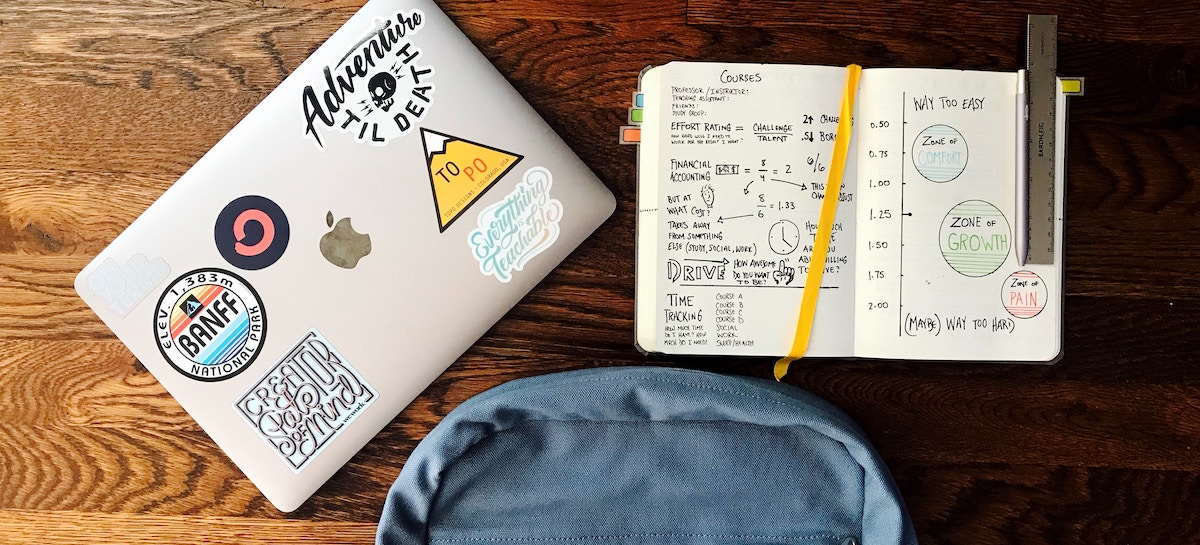 Adventure
TIL DEATH
TO
PO
TOPO DESIGNS • COLORADO, USA
Everything
is
Teachable
ELEV. 1,383m
BANFF
NATIONAL PARK
CREATOR
of Mind
wework
COURSES
PROFESSOR / INSTRUCTOR:
TEACHING ASSISTANT:
FRIENDS:
STUDY GROUP:
EFFORT RATING = CHALLENGE
TALENT
HOW HARD WILL I NEED TO
WORK FOR THE RESULT I WANT?
2↑ CHALL
.5↓ BOR
FINANCIAL
ACCOUNTING
= 8
4
= 2
6/6
THIS
CAN
CHA
JUST
BUT AT
WHAT COST?
8
6
= 1.33
TAKES AWAY
FROM SOMETHING
ELSE (STUDY, SOCIAL, WORK)
HOW MUCH
ARE
YOU
WILLING
TO
DRIVE → HOW AWESOME
DO YOU WANT
TO BE?
TIME
TRACKING
HOW MUCH TIME
DO I HAVE? HOW
MUCH DO I NEED?
COURSE A
COURSE B
COURSE C
COURSE D
SOCIAL
WORK
SLEEP/HEALTH
WAY TOO EASY
0.50
0.75
1.00
1.25
1.50
1.75
2.00
ZONE OF
COMFORT
ZONE OF
GROWTH
ZONE OF
PAIN
(MAYBE) WAY TOO HARD
BARON FIG